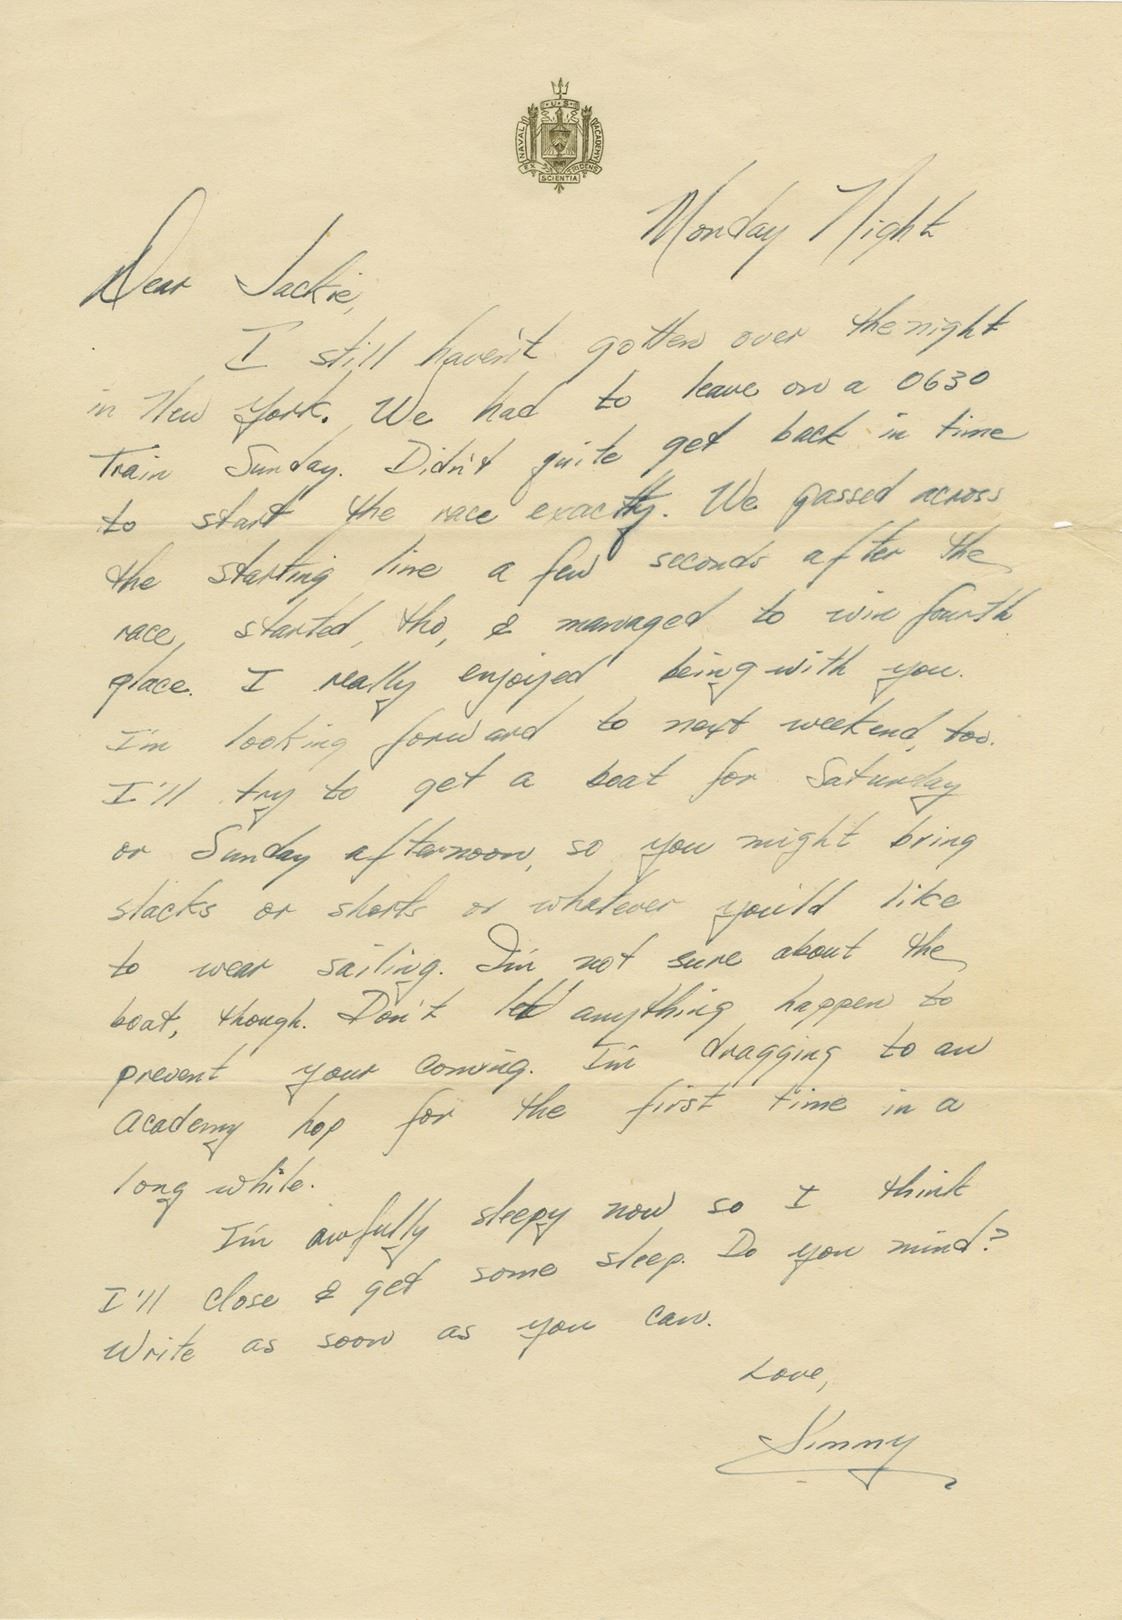 U·S
NAVAL
ACADEMY
EX
TRIDENS
SCIENTIA
Monday Night
Dear Jackie,
I still haven't gotten over the night
in New York. We had to leave on a 0630
train Sunday. Didn't quite get back in time
to start the race exactly. We passed across
the starting line a few seconds after the
race, started, tho, & managed to win fourth
place. I really enjoyed being with you.
I'm looking forward to next weekend, too.
I'll try to get a boat for Saturday
or Sunday afternoon, so you might bring
slacks or shorts or whatever you'ld like
to wear sailing. I'm not sure about the
boat, though. Don't let anything happen to
prevent your coming. I'm dragging to an
Academy hop for the first time in a
long while.
I'm awfully sleepy now so I think
I'll close & get some sleep. Do you mind?
Write as soon as you can.
Love,
Jimmy